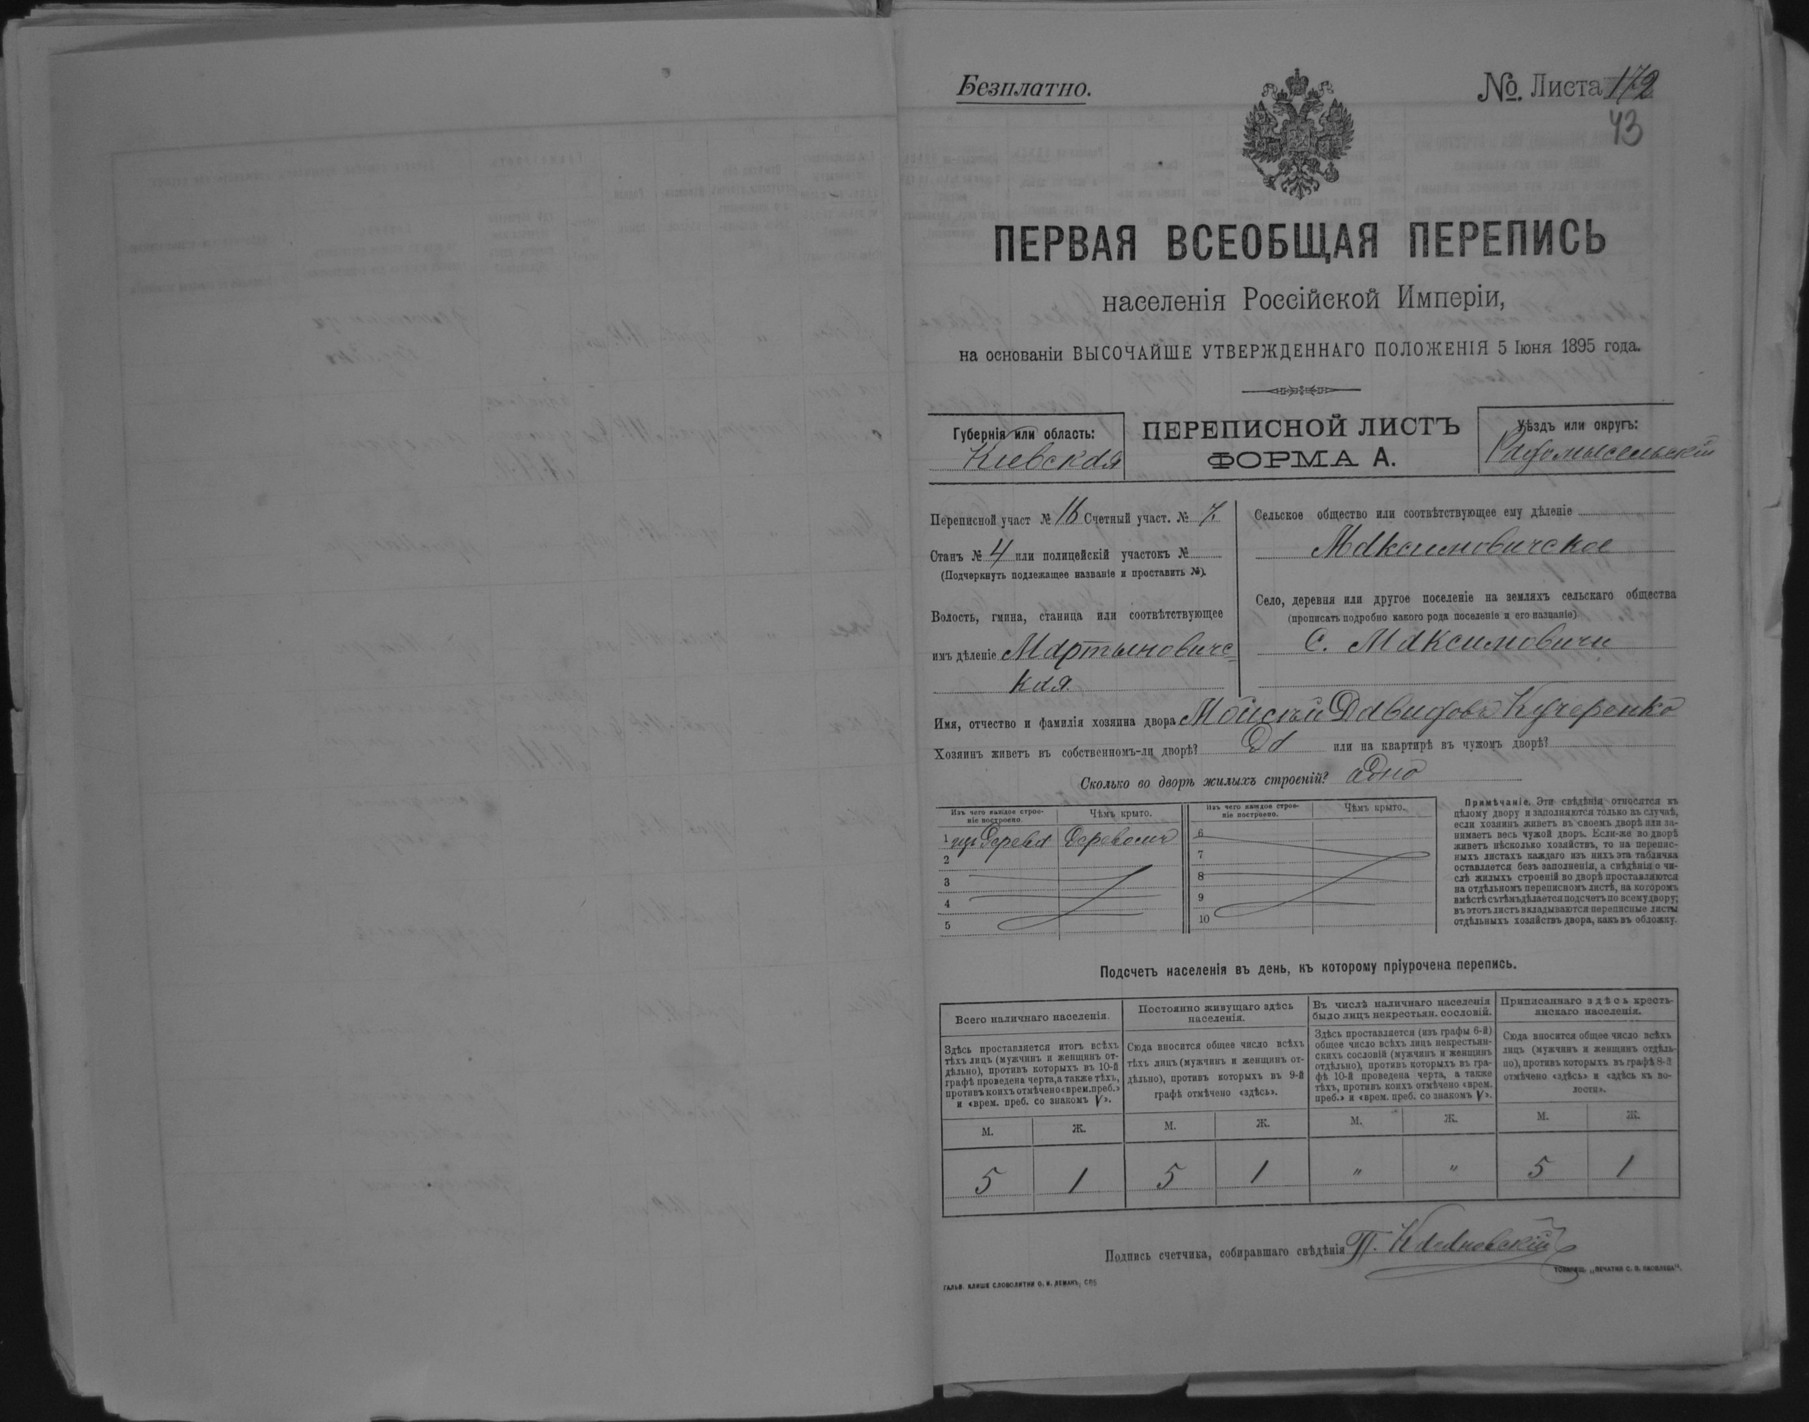 Безплатно.
№. Листа 172
43
ПЕРВАЯ ВСЕОБЩАЯ ПЕРЕПИСЬ
населенія Россійской Имперіи,
на основаніи ВЫСОЧАЙШЕ УТВЕРЖДЕННАГО ПОЛОЖЕНІЯ 5 Іюня 1895 года.
Губернія или область:
Кіевская
ПЕРЕПИСНОЙ ЛИСТЪ
ФОРМА А.
Уѣздъ или округъ:
Радомысельскій
Переписной участ № 16 Счетный участ. № 7
Станъ № 4 или полицейскій участокъ №
(Подчеркнуть подлежащее названіе и проставить №).
Волость, гмина, станица или соотвѣтствующее
имъ дѣленіе Мартыновичс
кая
Сельское общество или соотвѣтствующее ему дѣленіе
Максимовичское
Село, деревня или другое поселеніе на земляхъ сельскаго общества
(прописать подробно какого рода поселеніе и его названіе)
С. Максимовичи
Имя, отчество и фамилія хозяина двора Мойсей Давидовъ Кучеренко
Хозяинъ живетъ въ собственномъ-ли дворѣ? Да или на квартирѣ въ чужомъ дворѣ?
Сколько во дворѣ жилыхъ строеній? адно
Изъ чего каждое строе-
ніе построено.
Чѣмъ крыто.
1 изъ дерева деревомъ
2
3
4
5
Изъ чего каждое строе-
ніе построено.
Чѣмъ крыто.
6
7
8
9
10
Примѣчаніе. Эти свѣдѣнія относятся къ
цѣлому двору и заполняются только въ случаѣ,
если хозяинъ живетъ въ своемъ дворѣ или за-
нимаетъ весь чужой дворъ. Если-же во дворѣ
живетъ нѣсколько хозяйствъ, то на перепис-
ныхъ листахъ каждаго изъ нихъ эта табличка
оставляется безъ заполненія, а свѣдѣнія о чи-
слѣ жилыхъ строеній во дворѣ проставляются
на отдѣльномъ переписномъ листѣ, на которомъ
вмѣстѣ съ тѣмъ дѣлается подсчетъ по всему двору;
въ этотъ листъ вкладываются переписные листы
отдѣльныхъ хозяйствъ двора, какъ въ обложку.
Подсчетъ населенія въ день, къ которому пріурочена перепись.
Всего наличнаго населенія.
Здѣсь проставляется итогъ всѣхъ
тѣхъ лицъ (мужчинъ и женщинъ от-
дѣльно), противъ которыхъ въ 10-й
графѣ проведена черта, а также тѣхъ,
противъ коихъ отмѣчено «врем. преб.»
и «врем. преб. со знакомъ V».
М. Ж.
5 1
Постоянно живущаго здѣсь
населенія.
Сюда вносится общее число всѣхъ
тѣхъ лицъ (мужчинъ и женщинъ от-
дѣльно), противъ которыхъ въ 9-й
графѣ отмѣчено «здѣсь».
М. Ж.
5 1
Въ числѣ наличнаго населенія
было лицъ некрестьян. сословій.
Здѣсь проставляется (изъ графы 6-й)
общее число всѣхъ лицъ некрестьян-
скихъ сословій (мужчинъ и женщинъ
отдѣльно), противъ которыхъ въ гра-
фѣ 10-й проведена черта, а также
тѣхъ, противъ коихъ отмѣчено «врем.
преб.» и «врем. преб. со знакомъ V».
М. Ж.
" "
Приписаннаго здѣсь кресть-
янскаго населенія.
Сюда вносится общее число всѣхъ
лицъ (мужчинъ и женщинъ отдѣль-
но), противъ которыхъ въ графѣ 8-й
отмѣчено «здѣсь» и «здѣсь къ во-
лости».
М. Ж.
5 1
Подпись счетчика, собиравшаго свѣдѣнія П.
ГАЛЬВ. КЛИШЕ СЛОВОЛИТНИ О. И. ЛЕМАНЪ, СПБ
ТОВАРИЩ. „ПЕЧАТНЯ С. П. ЯКОВЛЕВА“.